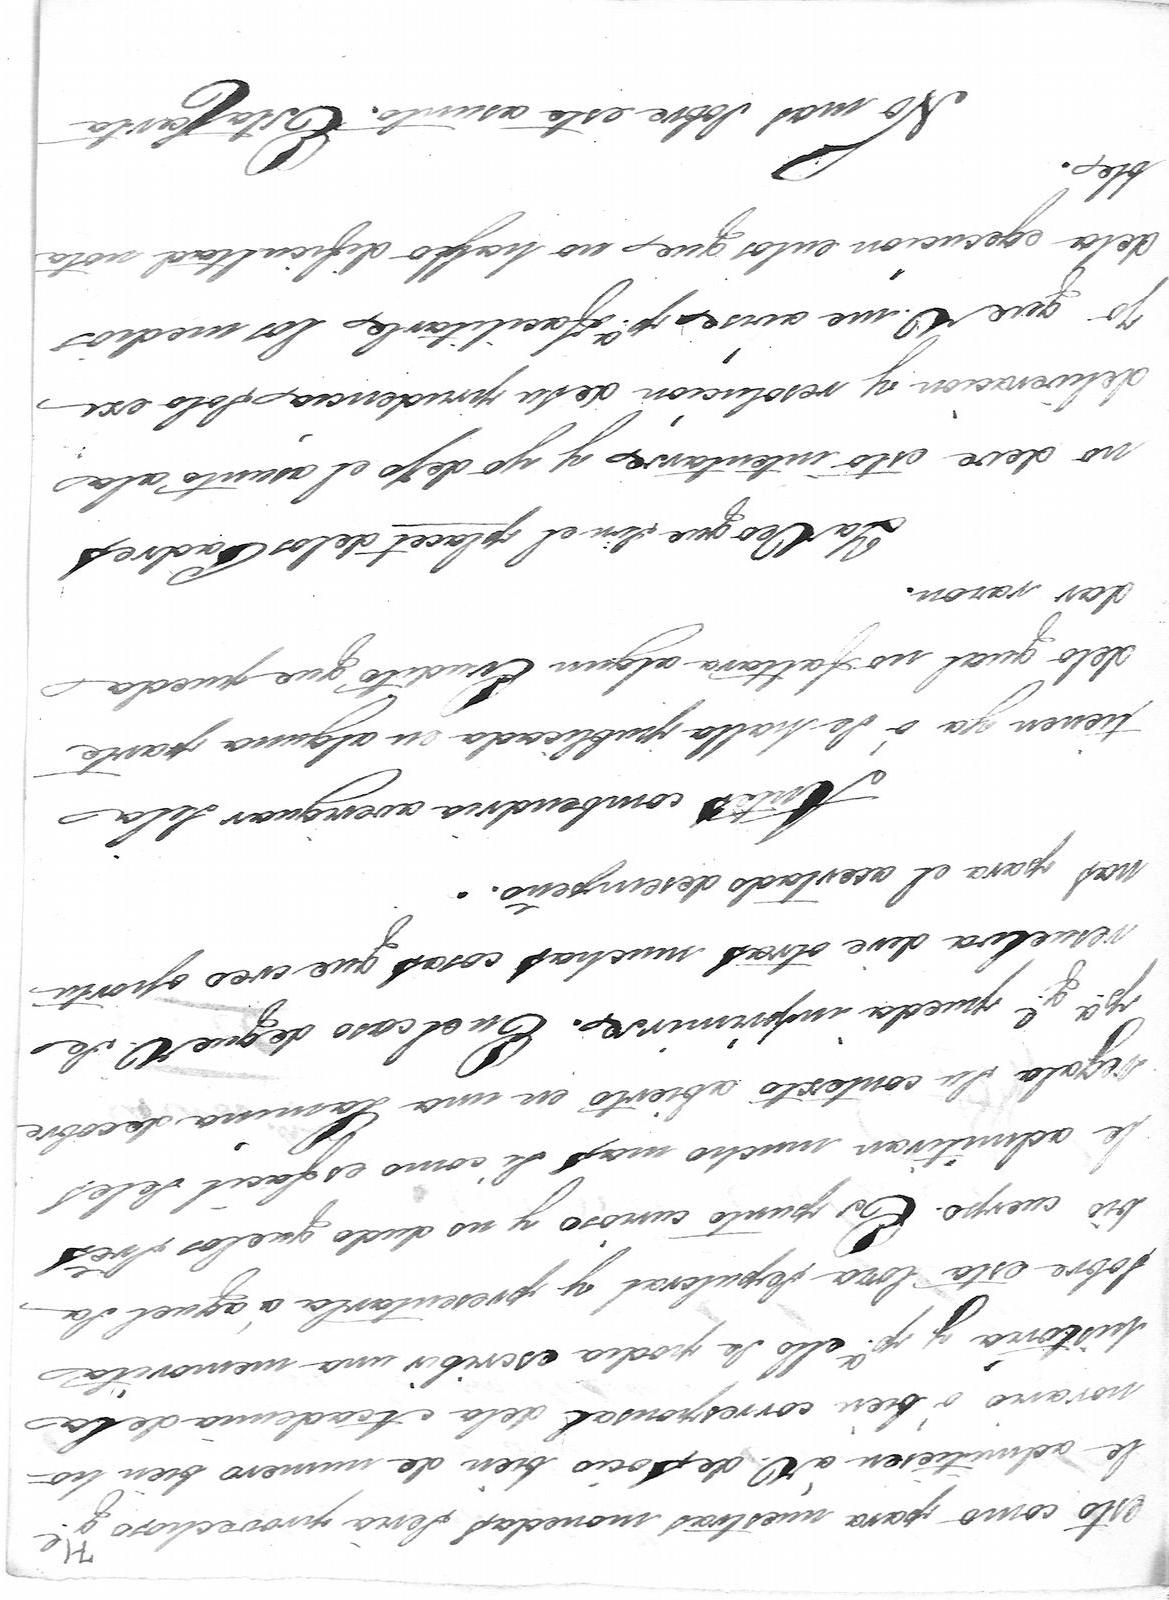 71
esto como para nuestras monedas seria provechoso q.e
le admitiesen a V. de socio bien de numero bien ho-
norario ó bien corresponsal dela Academia de la
historia y p.a ello se podia escribir una memorita
sobre esta loza sepulcral y presentarla á aquel Sa-
bio cuerpo. El punto curioso y no dudo que los Sres
le admitiran mucho mas si como es facil seles
regala su contexto abierto en una Lamina de cobre
p.a q.e pueda imprimirse. En el caso de que V. se
resuelva dire otras muchas cosas que creo oportu
nas para el acertado desempeño.
Antes combendria averiguar si la
tienen ya ó se halla publicada en alguna parte
delo qual no faltara algun Erudito que pueda
dar razon.
Ya Veo que sin el placet delos Padres
no deve esto intentarse y yo dejo el asunto ala
deliveracion y resolucion desu prudencia, solo exi
jo que V. me avise p.a facilitarle los medios
dela egecucion enlos que no hallo dificultad nota
ble.
No mas sobre este asunto. Esta carta